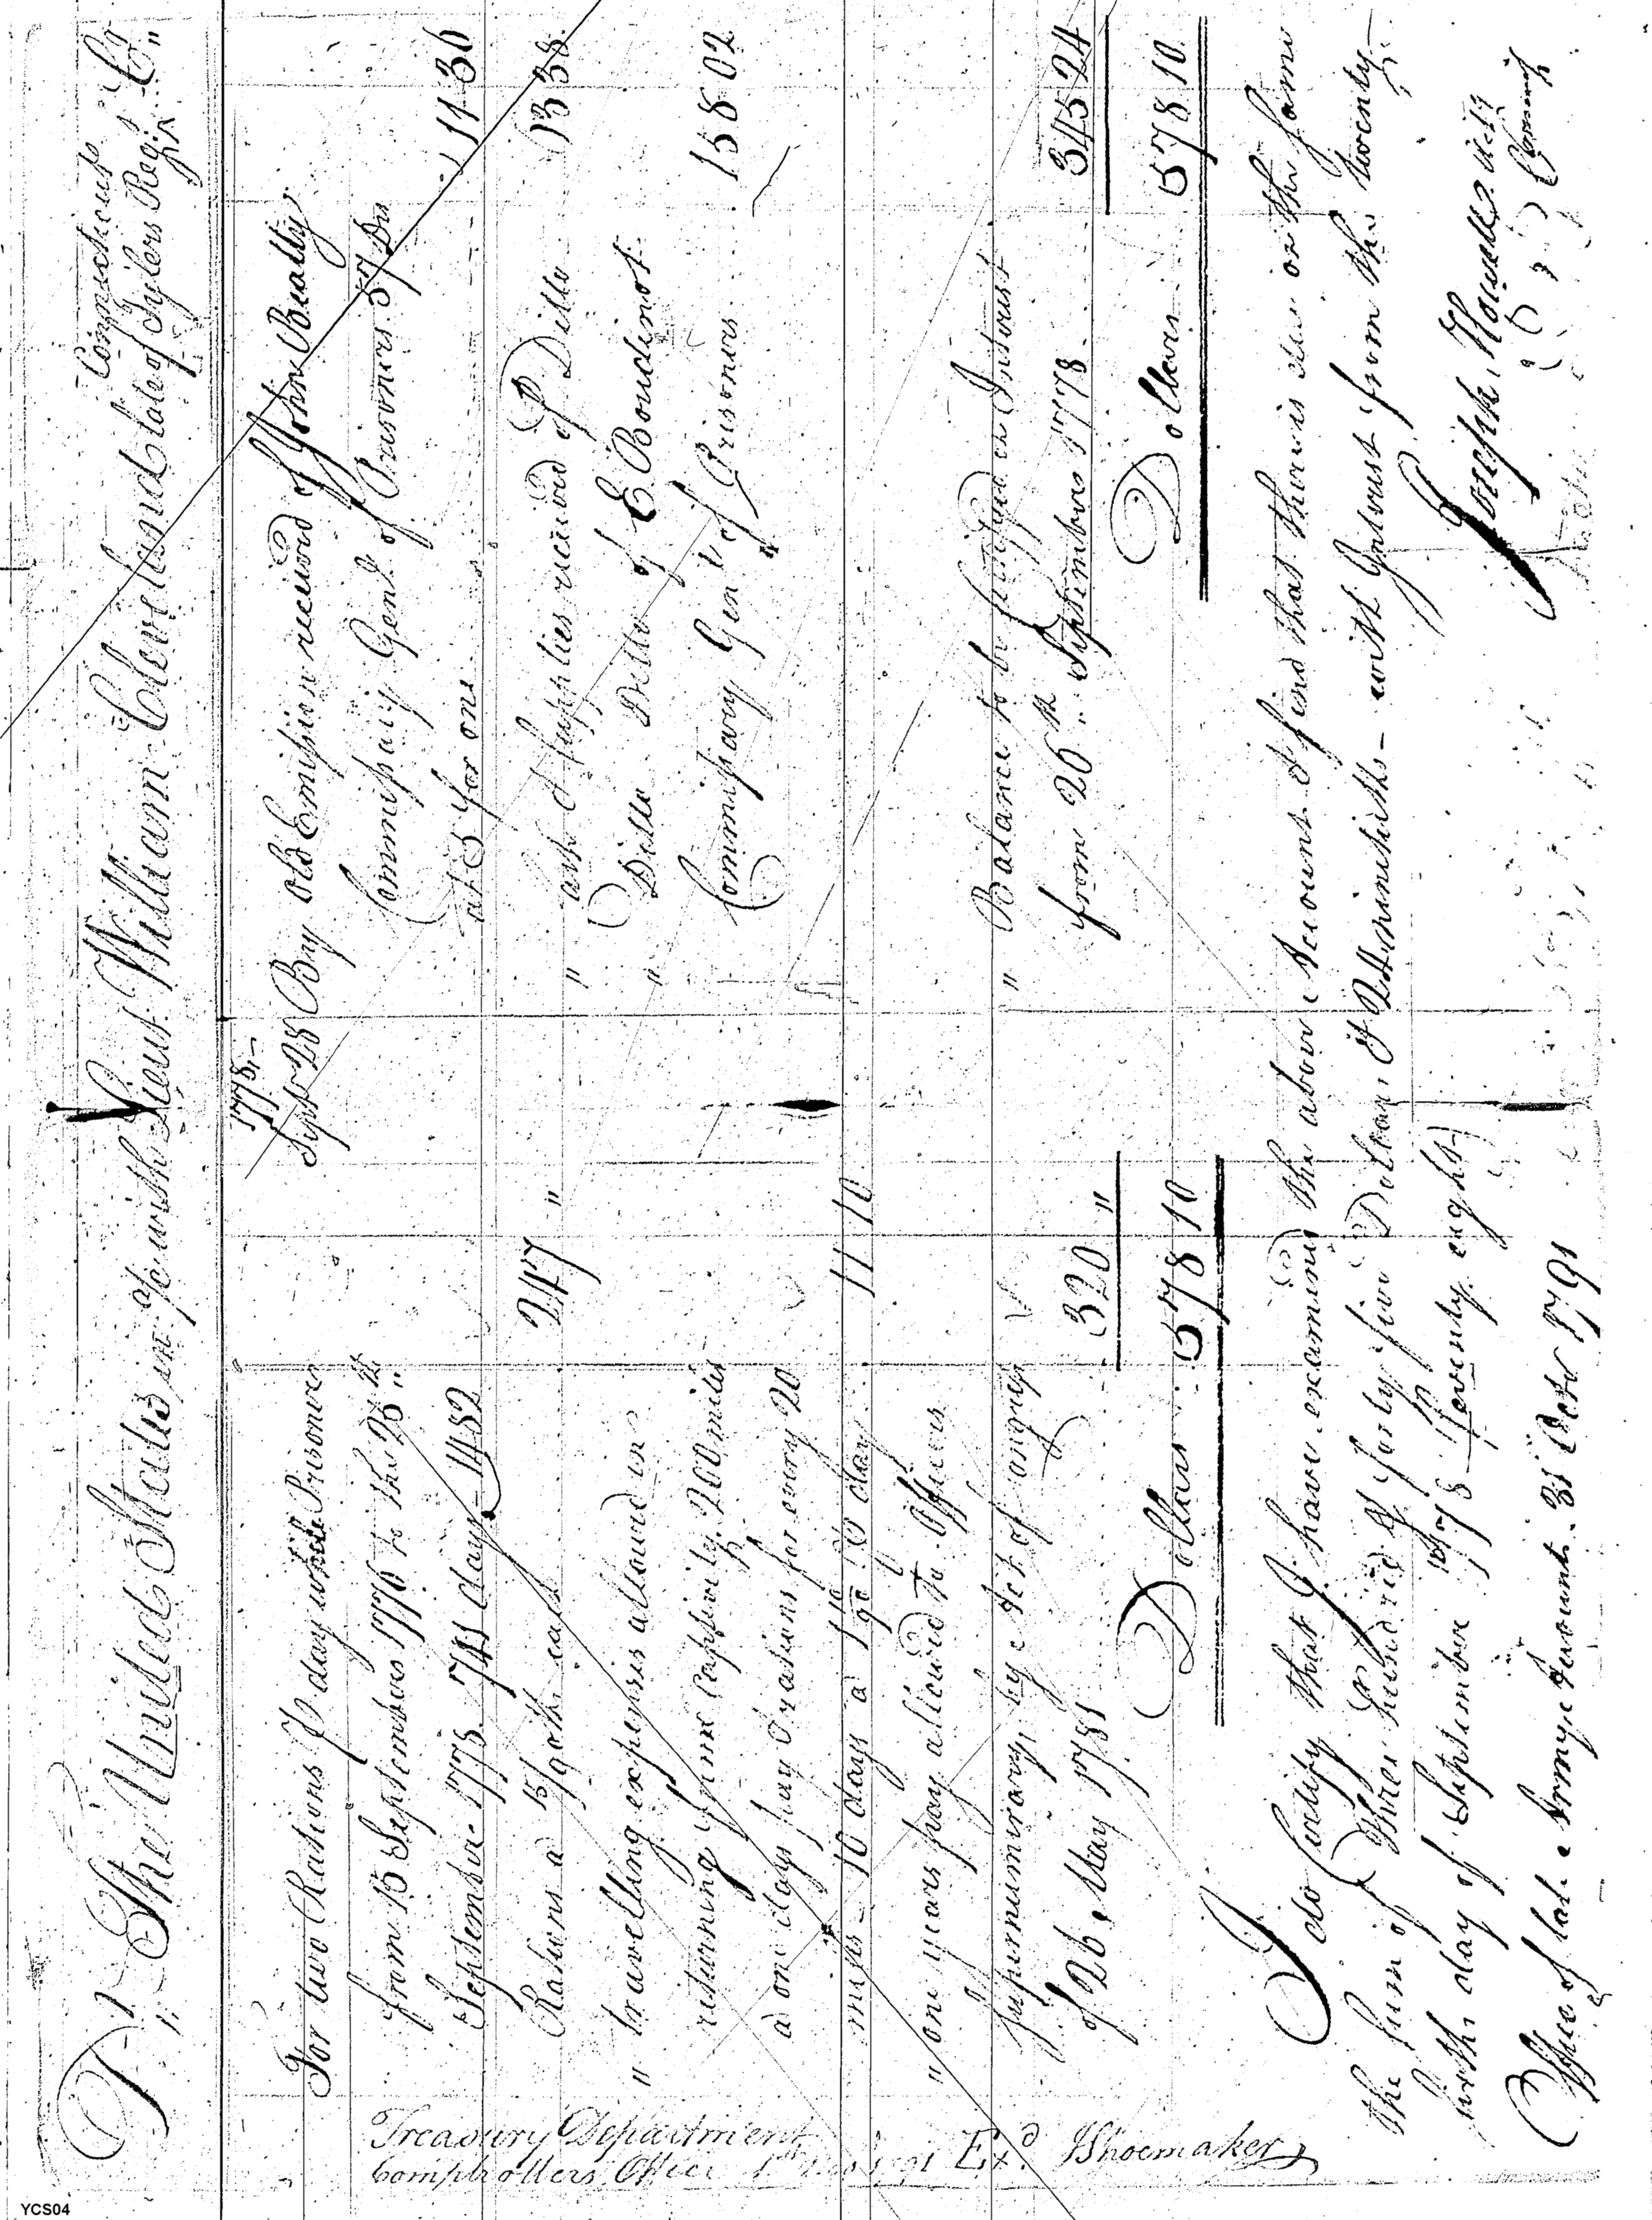 Connecticut
Dr. The United States in a/c with Lieut William Cleveland late of Tylers Regt Cr.
1778.
For two Rations P day while Prisoner
from 15 September 1776 to the 25th
September 1778. 741 days - 1482
Rations a 15/90ths each 247 "
" travelling expenses allowed in
returning from Captivity. 200 miles
a one days pay & rations for every 20
miles - 10 days a P day 11 10
" one years pay allowed to Officers
supernumerary, by Act of Congress
of 26, May 1781 320 "
Dollars 578 10
Sept 28 By old Emission received of John Beatty
Commissary Genl of Prisoners 57 Drs
at 5 for one 11 36
" " Supplies received of Ditto 63 38
" Ditto Ditto of E. Boudinot
Commissary Genl of Prisoners 158 02
" Balance to be funded on Interest
from 26th September 1778. 345 24
Dollars 578 10
I do Certify that I have examined the above Account & find that there is due on the same
the sum of Three hundred & forty five Dollars & 24 ninetieths - with Interest from the twenty
sixth day of September 1778 (seventy eight)
Joseph Howell
Office of late Army Accounts 31 Octo 1791
Treasury Department
Comptrollers Office Exd JShoemaker
YCS04